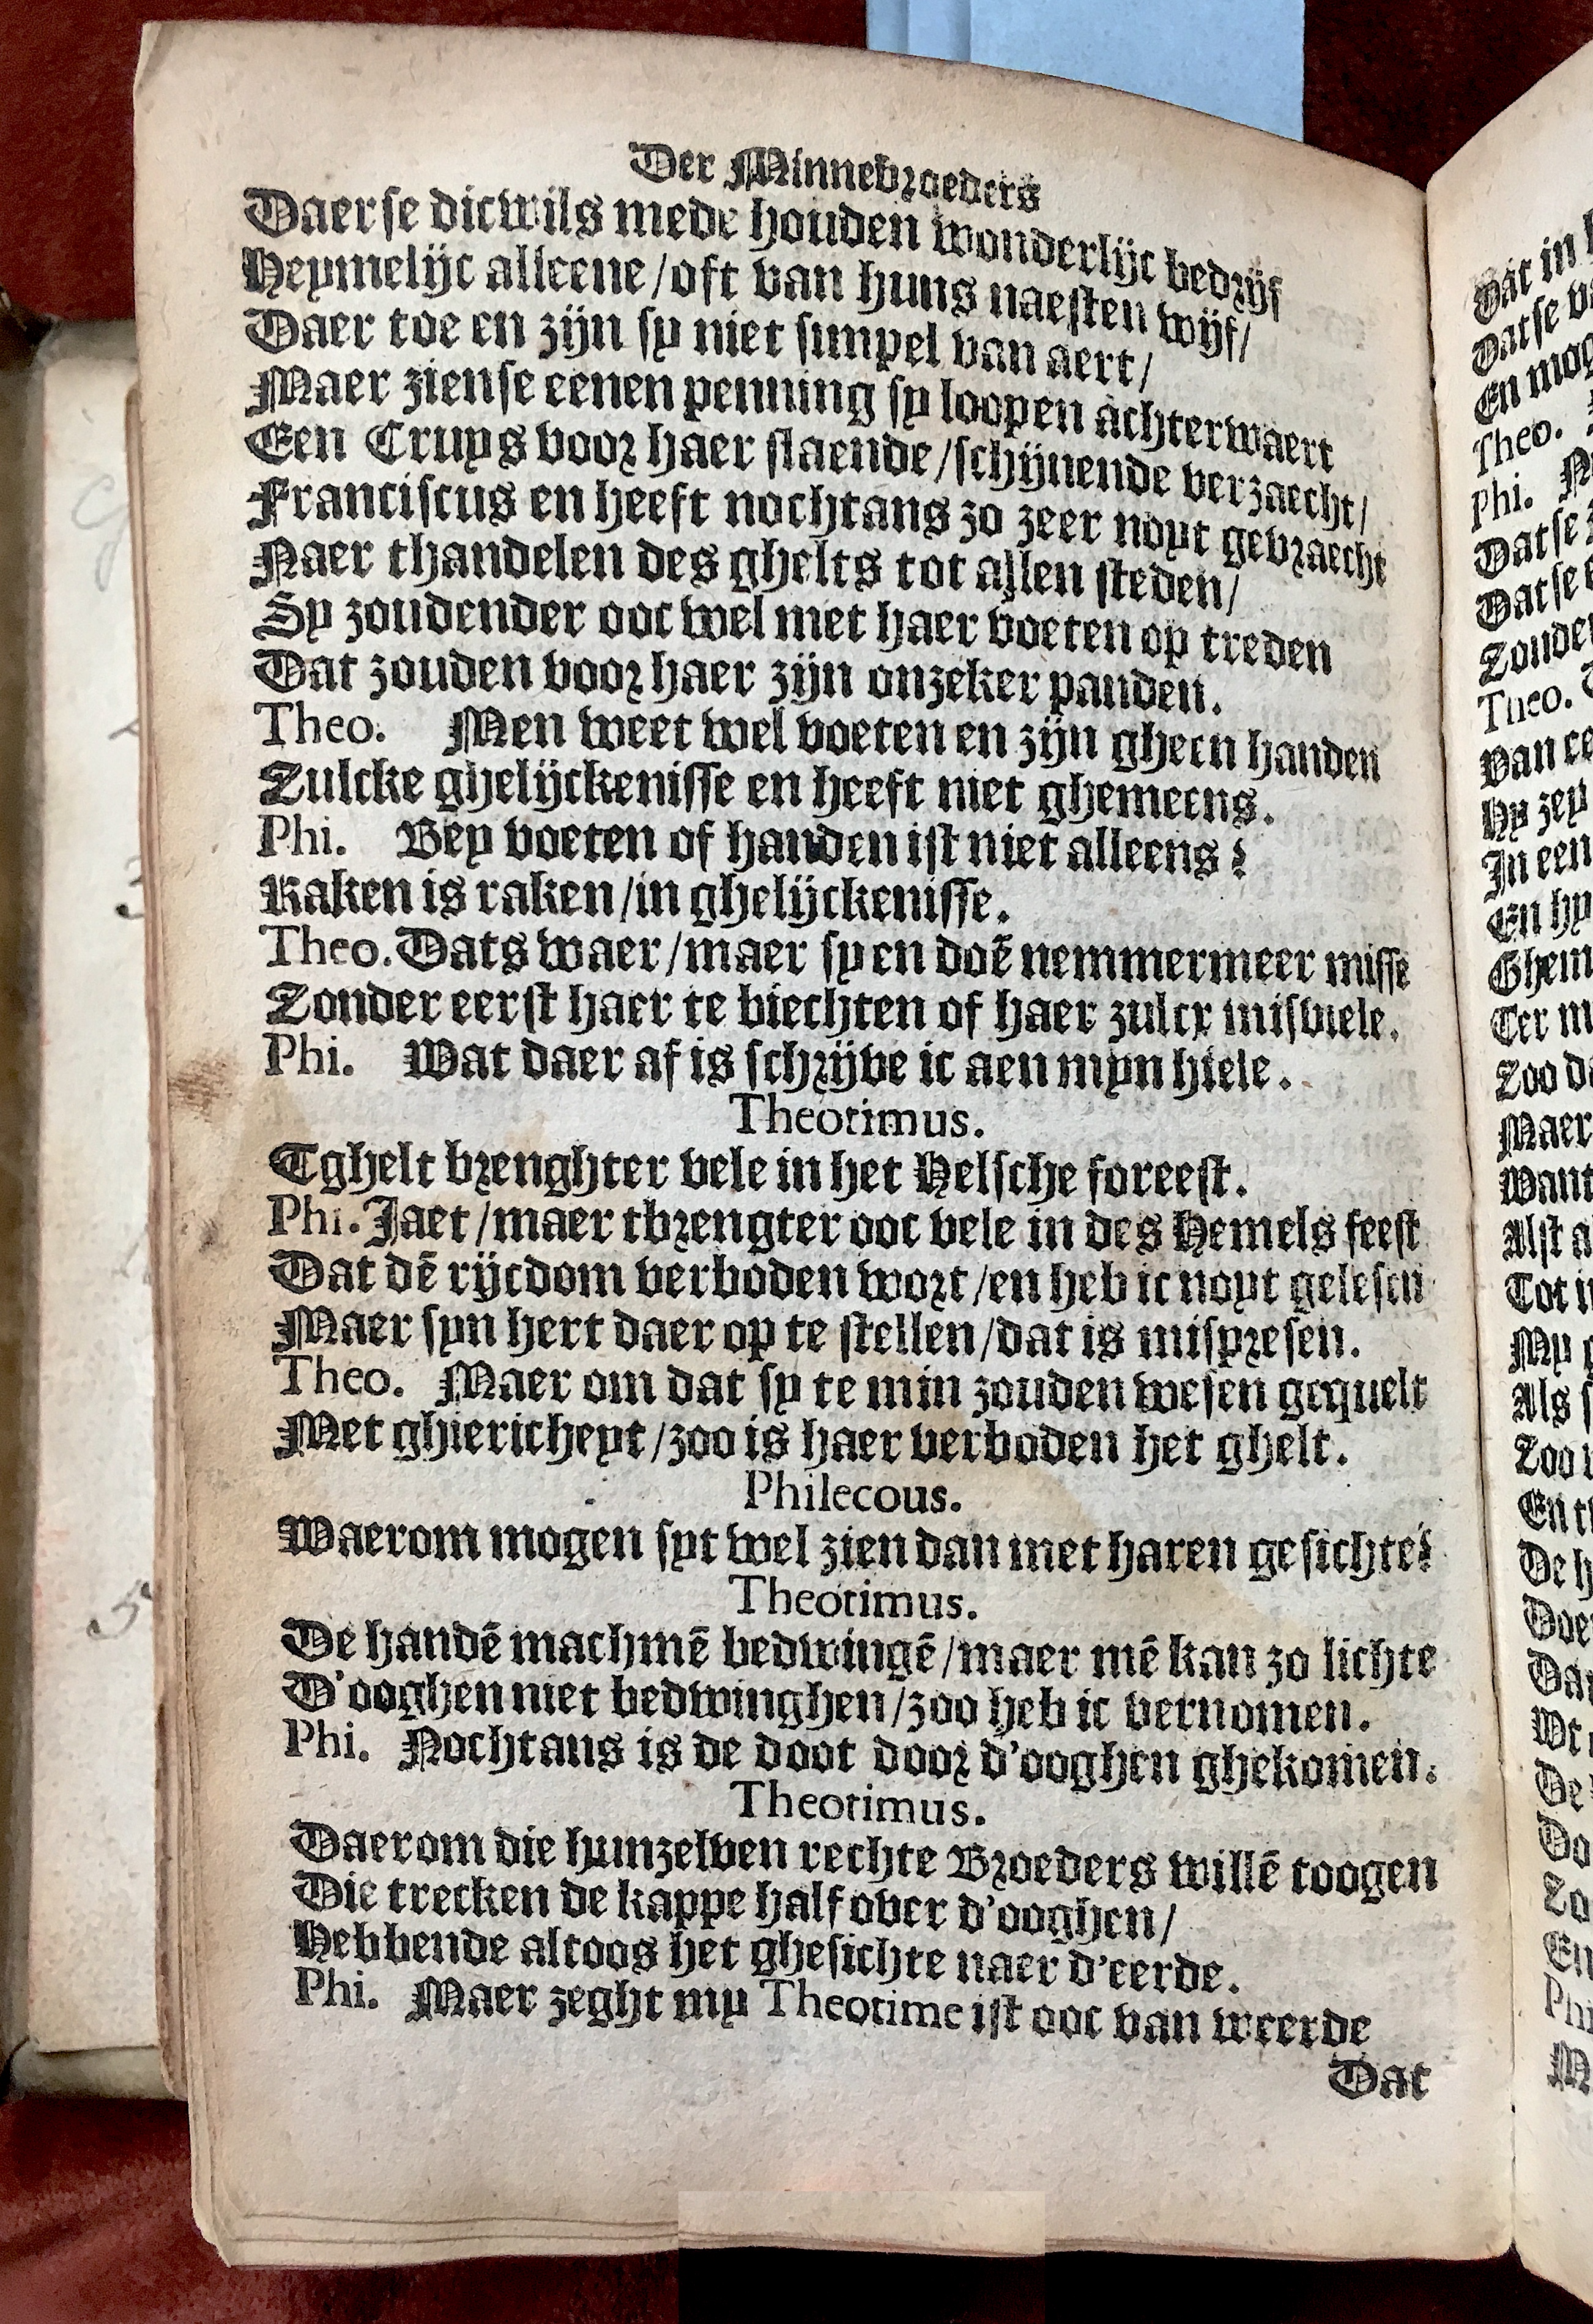 Der Minnebroeders
Daerse dicwils mede houden wonderlijc bedrijf
Heymelijc alleene/oft van huns naesten wijf/
Daer toe en zijn sy niet simpel van aert/
Maer ziense eenen penning sy loopen achterwaert
Een Cruys voor haer slaende/schijnende verzaecht/
Franciscus en heeft nochtans zo zeer noyt gebraecht
Naer thandelen des ghelts tot allen steden/
Sy zoudender ooc wel met haer voeten op treden
Dat zouden voor haer zijn onzeker panden.
Theo. Men weet wel voeten en zijn gheen handen
Zulcke ghelijckenisse en heeft niet ghemeens.
Phi. Bey voeten of handen ist niet alleens?
Raken is raken/in ghelijckenisse.
Theo. Dats waer/maer sy en doē nemmermeer misse
Zonder eerst haer te biechten of haer zulcx misviele.
Phi. Wat daer af is schrijve ic aen myn hiele.
Theotimus.
Tghelt brenghter vele in het Helsche foreest.
Phi. Jaet/maer tbrengter ooc vele in des Hemels feest
Dat dē rijcdom verboden wort/en heb ic noyt gelesen
Maer syn hert daer op te stellen/dat is mispresen.
Theo. Maer om dat sy te min zouden wesen gequelt
Met ghiericheyt/zoo is haer verboden het ghelt.
Philecous.
Waerom mogen syt wel zien dan met haren gesichte?
Theotimus.
De handē machmē bedwingē/maer mē kan zo lichte
D'ooghen niet bedwinghen/zoo heb ic vernomen.
Phi. Nochtans is de doot door d'ooghen ghekomen.
Theotimus.
Daerom die hunzelven rechte Broeders willē toogen
Die trecken de kappe half over d'ooghen/
Hebbende altoos het ghesichte naer d'eerde.
Phi. Maer zeght my Theotime ist ooc van weerde
Dat
Dat in
Datse
En mog
Theo.
Phi.
Datse
Datse
Zouden
Theo.
Van
Hy zey
In een
En hy
Ghem
Ter m
Zoo
Maer
Want
Alst
Tot
My
Als
Zoo
En
De
Doe
Dat
Wt
De
Do
Zo
En
Phi
M